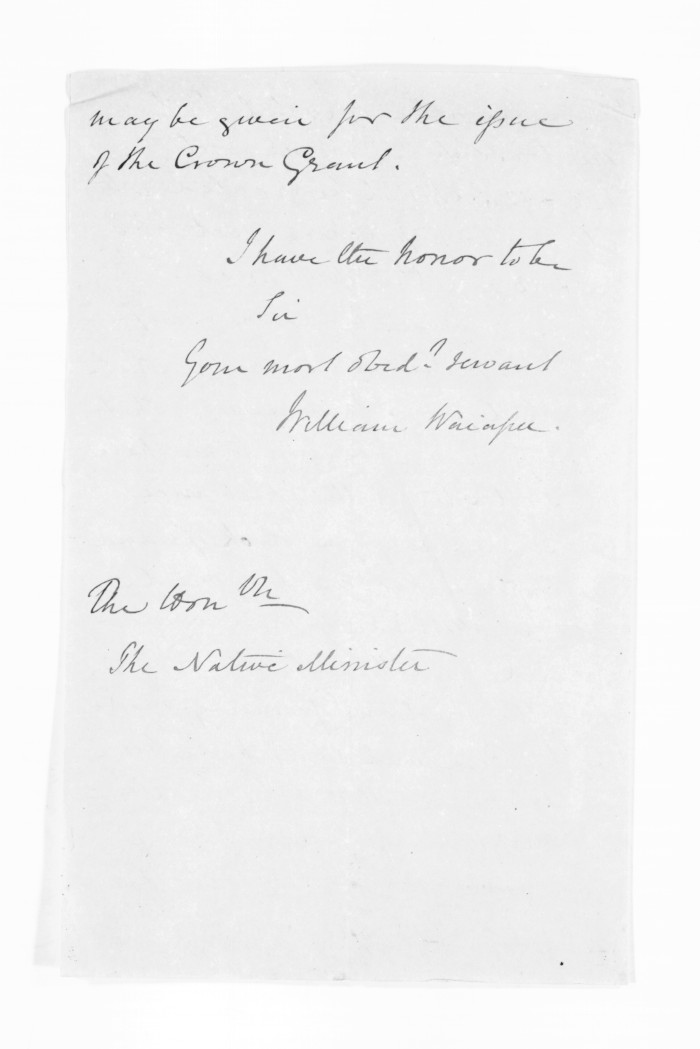 may be given for the issue
of the Crown Grant.
I have the honor to be
Sir
Your most obedt servant
William Waiapu.
The Honble
The Native Minister